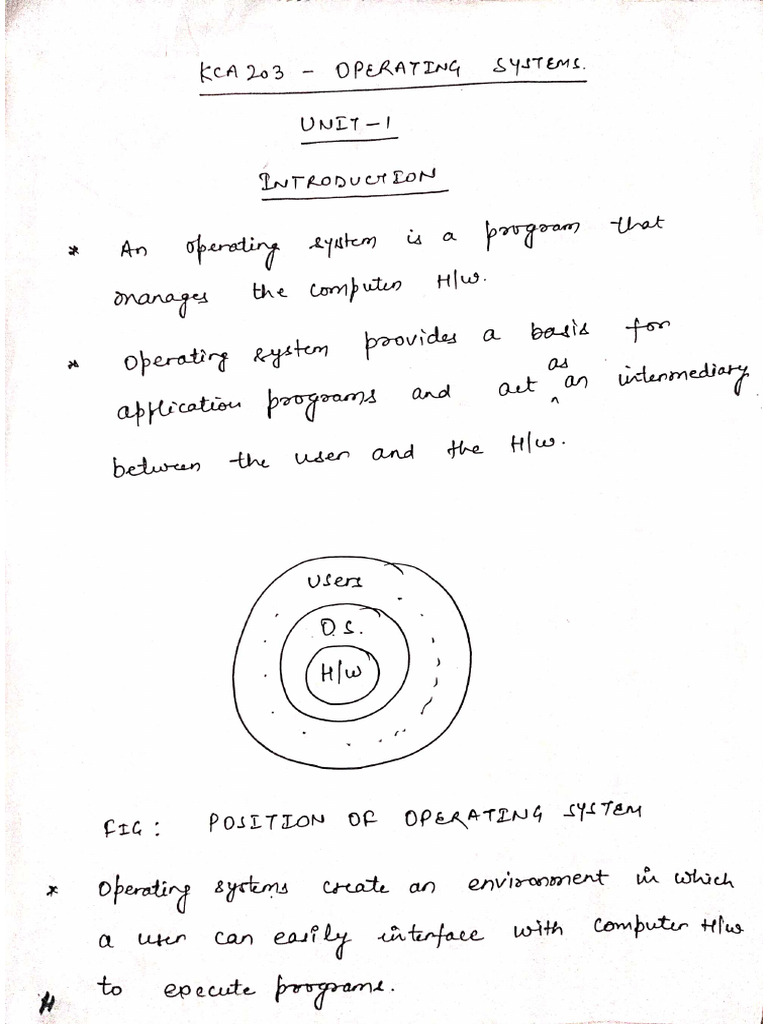 KCA203 - OPERATING SYSTEMS.
UNIT-1
INTRODUCTION
* An operating system is a program that
manages the computer H/W.
* Operating system provides a basis for
application programs and act as an intermediary
between the user and the H/W.
Users
O.S.
H/W
FIG: POSITION OF OPERATING SYSTEM
* Operating systems create an environment in which
a user can easily interface with computer H/W
to execute programs.